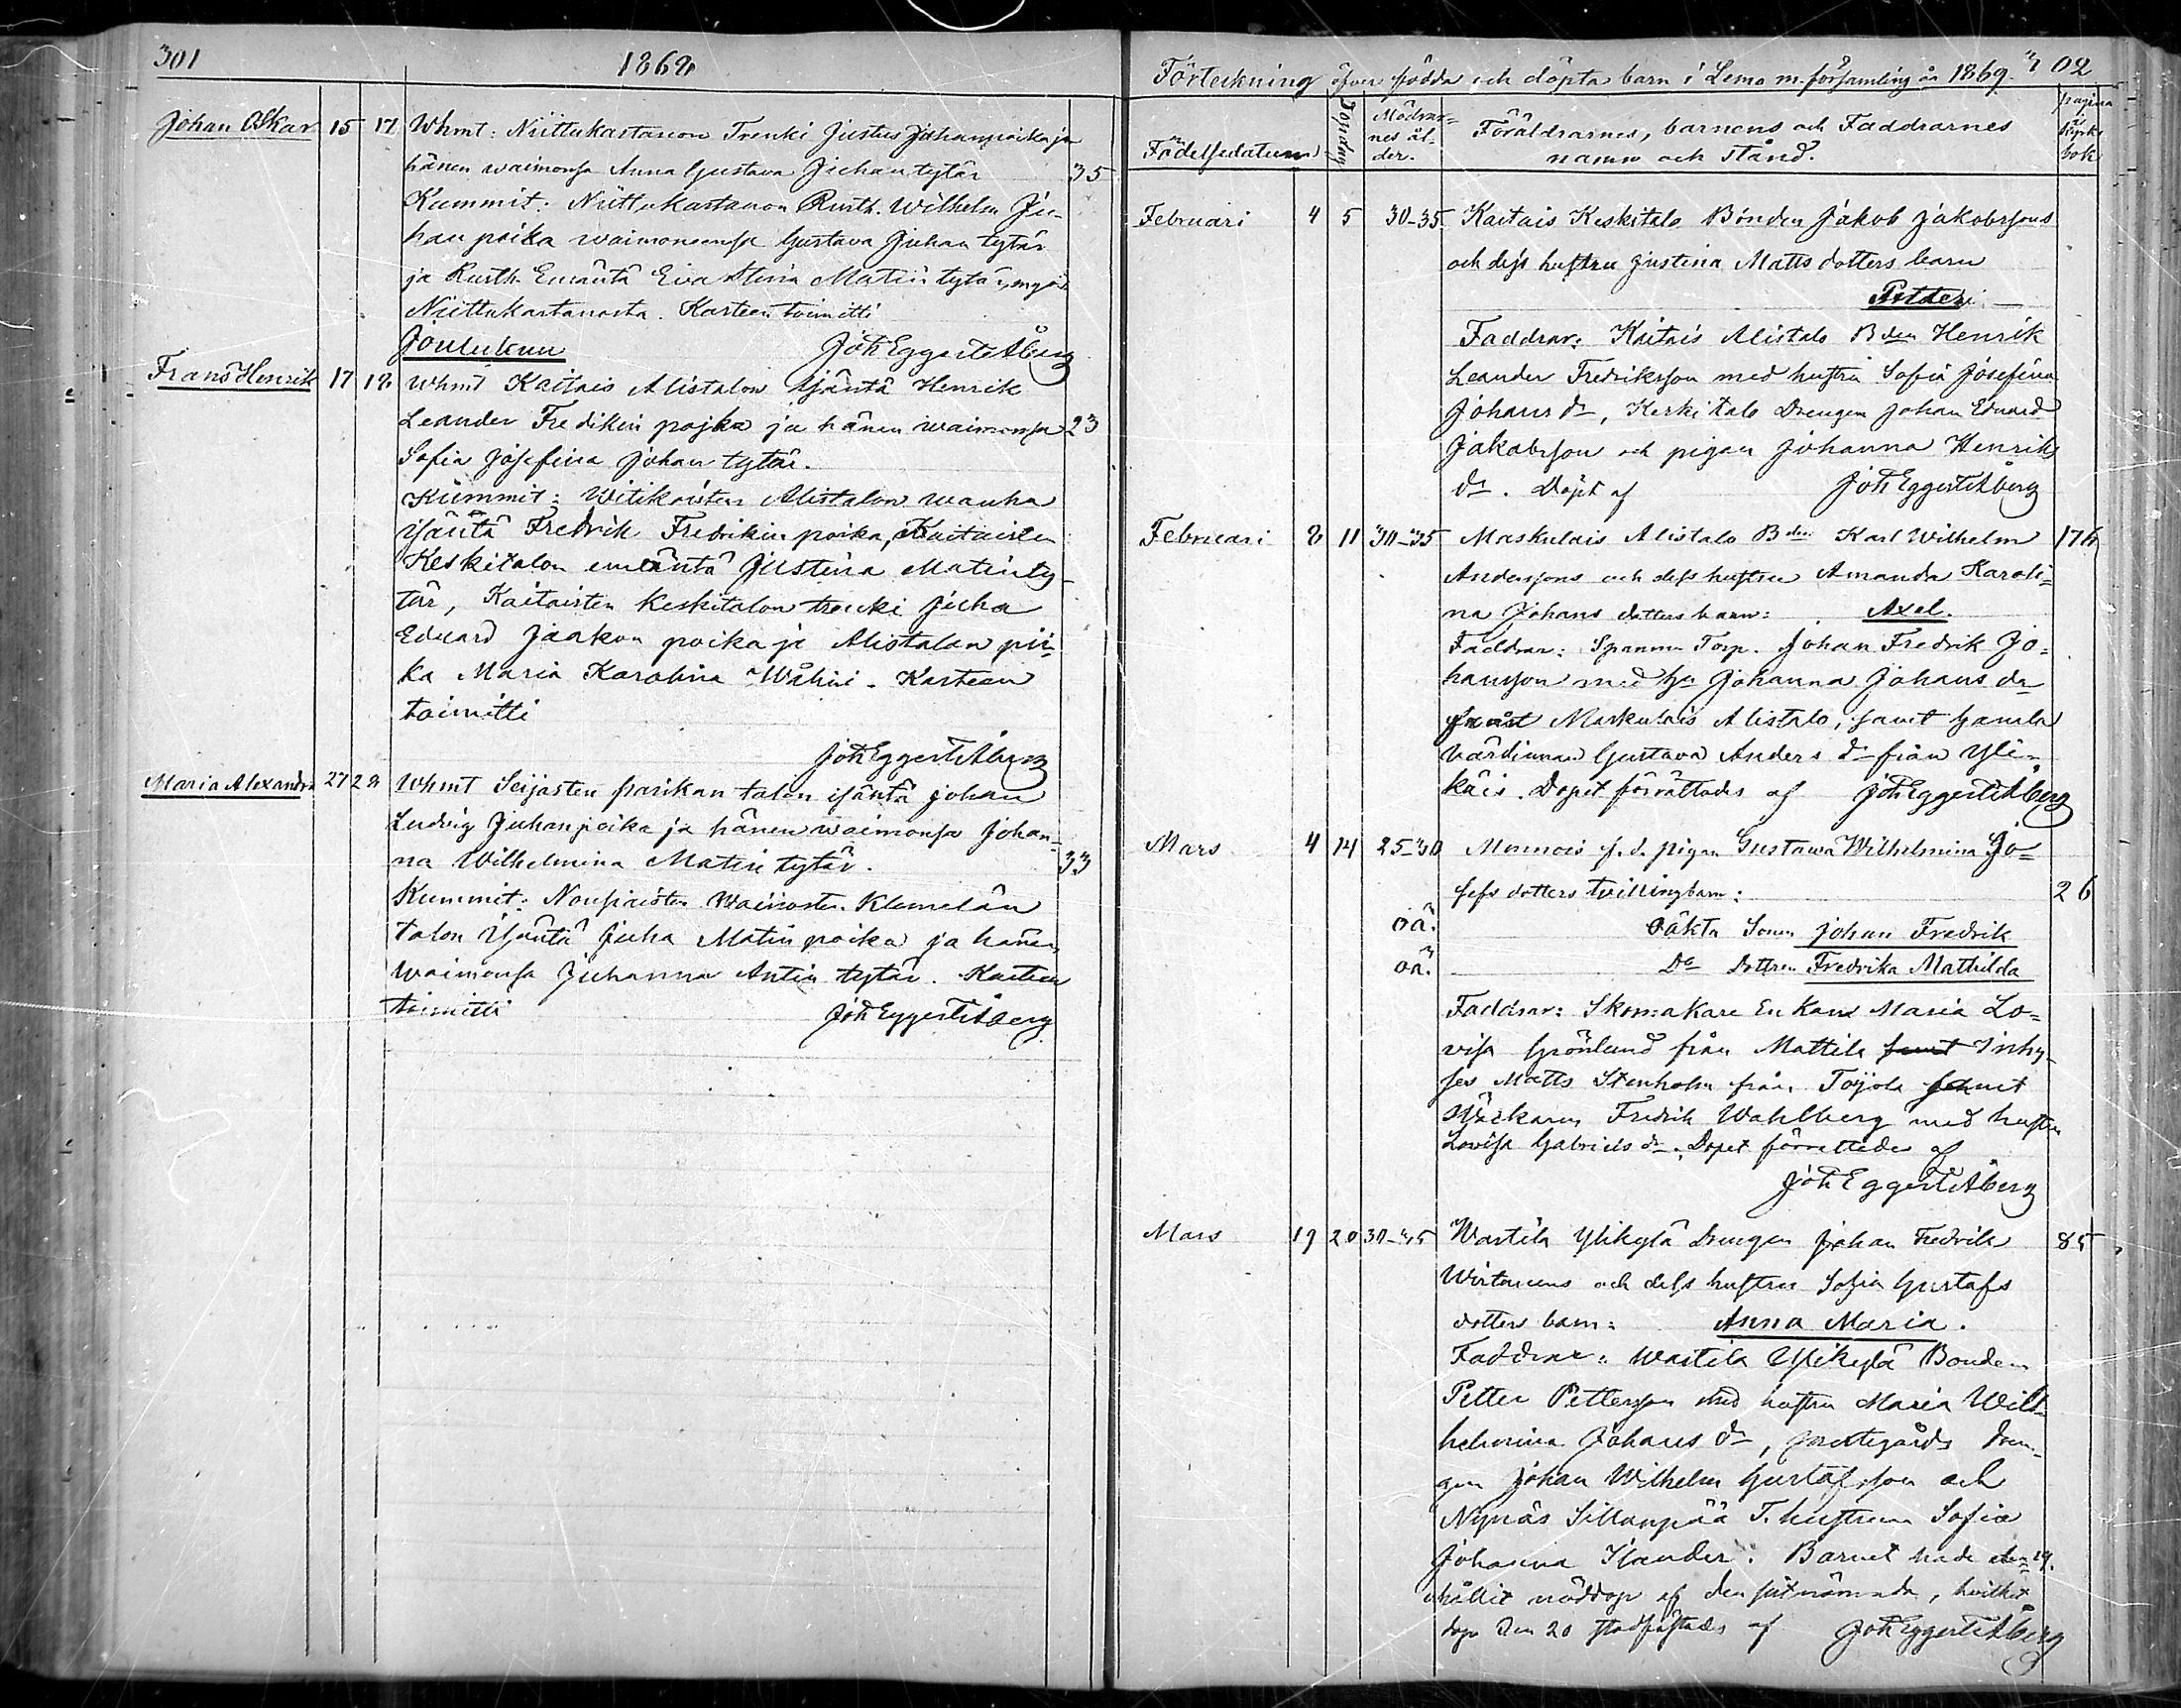 301
1868
Johan Oskar 15 17 Whmt: Niittukastanon Trenki Justus Juhanpoika ja
hänen waimonsa Anna Gustava Juhan tytär 35
Kummit: Niittukastanon Rusth. Wilhelm Ju-
han poika waimonensa Gustava Juhan tytär
ja Rusth. Emäntä Eva Stina Matin tytär, myös
Niittukastanosta. Kasteen toimitti
Joulukuu Joh Eggert Åberg
Frans Henrik 17 18 Whmt Kaitais Alistalon Isäntä Henrik
Leander Fredikin pojka ja hänen waimonsa 23
Sofia Josefina Johan tytär.
Kummit: Witikaisten Alistalon wanha
Isäntä Fredrik Fredrikin poika, Kaitaisten
Keskitalon emäntä Justina Matinty-
tär, Kaitaisten Keskitalon trenki Juha
Eduard Jaakon poika ja Alistalon pii-
ka Maria Karolina Wähni. Kasteen
toimitti
Joh Eggert Åberg
Maria Alexandra 27 28 Whmt Seijasten talon isäntä Johan
Ludvig Juhanpoika ja hänen waimonsa Johan-
na Wilhelmina Matin tytär. 33
Kummit: Nousiaisten Klemelän
talon Isäntä Juha Matin poika ja hänen
waimonsa Juhanna Antin tytär. Kasteen
toimitti Joh Eggert Åberg
Förteckning öfver födda och döpta barn i Lemo m. församling år 1869. 302
Födelsedatum Dopsdag Mödrar-
nes ål-
der. Föräldrarnes, barnens och Faddrarnes
namn och stånd. pagina
i
kyrko
bok
Februari 4 5 30-35 Kaitais Keskitalo Bonden Jakob Jakobssons
och dess hustru Justina Matts dotters barn
Petter.
Faddrar: Kaitais Alistalo Bden Henrik
Leander Fredriksson med hustru Sofia Josefina
Johans dr, Keskitalo Drengen Johan Eduard
Jakobsson och pigan Johanna Henriks
dr. Döpt af Joh Eggert Åberg
Februari 8 11 30-35 Maskulais Alistalo Bden Karl Wilhelm 176
Anderssons och dess hustru Amanda Karoli-
na Johans dotters barn: Axel.
Faddrar: Torp. Johan Fredrik Jo-
hansson med hu Johanna Johans dr
Maskulais Alistalo, samt gamla
värdinnan Gustava Anders dr från Yli-
käis. Dopet förrättades af Joh Eggert Åberg
Mars 4 14 25-30 Monnois f.d. pigan Gustawa Wilhelmina Jo-
sefs dotters tvillingbarn: 26
oä. oäkta Sonen Johan Fredrik
oä. Do Dottren Fredrika Mathilda
Faddrar: Skomakare Enkan Maria Lo-
visa Grönlund från Mattila samt Inhy-
ses Matts Stenholm från Toijola samt
Fredrik Wahlberg med hustru
Lovisa Gabriels dr. Dopet förrättades af
Joh Eggert Åberg
Mars 19 20 30-35 Wastila Ylikylä Drengen Johan Fredrik 85
Wirtanens och dess hustru Sofia Gustafs
dotters barn: Anna Maria.
Faddrar: Wastila Ylikylä Bonden
Petter Pettersson med hustru Maria Wil-
helmina Johans dr, prestegårds dren-
gen Johan Wilhelm Gustafsson och
Nynäs Sillanpää T. hustrun Sofia
Johanna Ilander. Barnet hade den 19.
hållit nöddop af den sistnämnda, hvilket
dop den 20 stadfästades af Joh Eggert Åberg